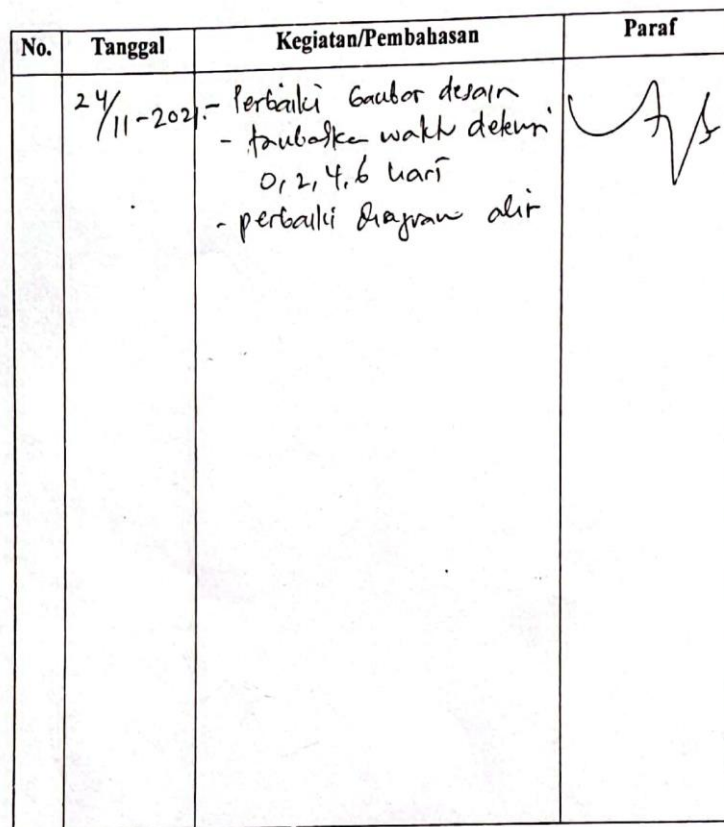 No. Tanggal Kegiatan/Pembahasan Paraf
24/11-2021 - Perbaiki Gambar desain
- tambahkan waktu detensi
0, 2, 4, 6 hari
- perbaiki diagram alir